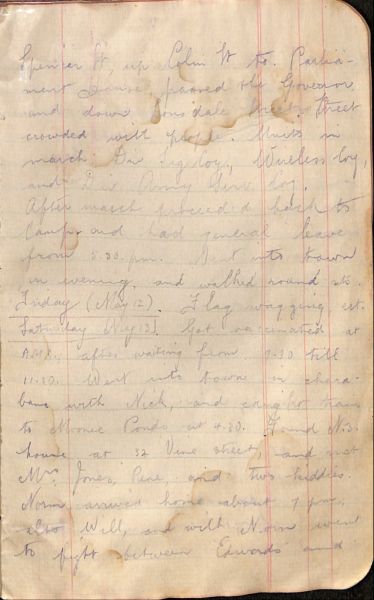 Spencer St, up Colin St to Parlia-
ment House, passed the Governor
and down Lonsdale Street. Street
crowded with people. Units in
march Div sig coy, Wireless coy,
and Div Army Serv coy.
After march proceeded back to
Camp and had general leave
from 5.30 p.m. Went into town
in evening, and walked round etc.
Friday (May 12). Flag wagging, ect.
Saturday May 13]. Got vaccinated at
after waiting from 9.30 till
11.20. Went into town in chara-
banc with Nick, and caught train
to Moonee Ponds at 4.20. Found N.s.
house at 32 Vine street, and met
Mrs. Jones, Rene, and two kiddies.
Norm arrived home about 7 pm,
also Will, and with Norm went
to fight between Edwards and